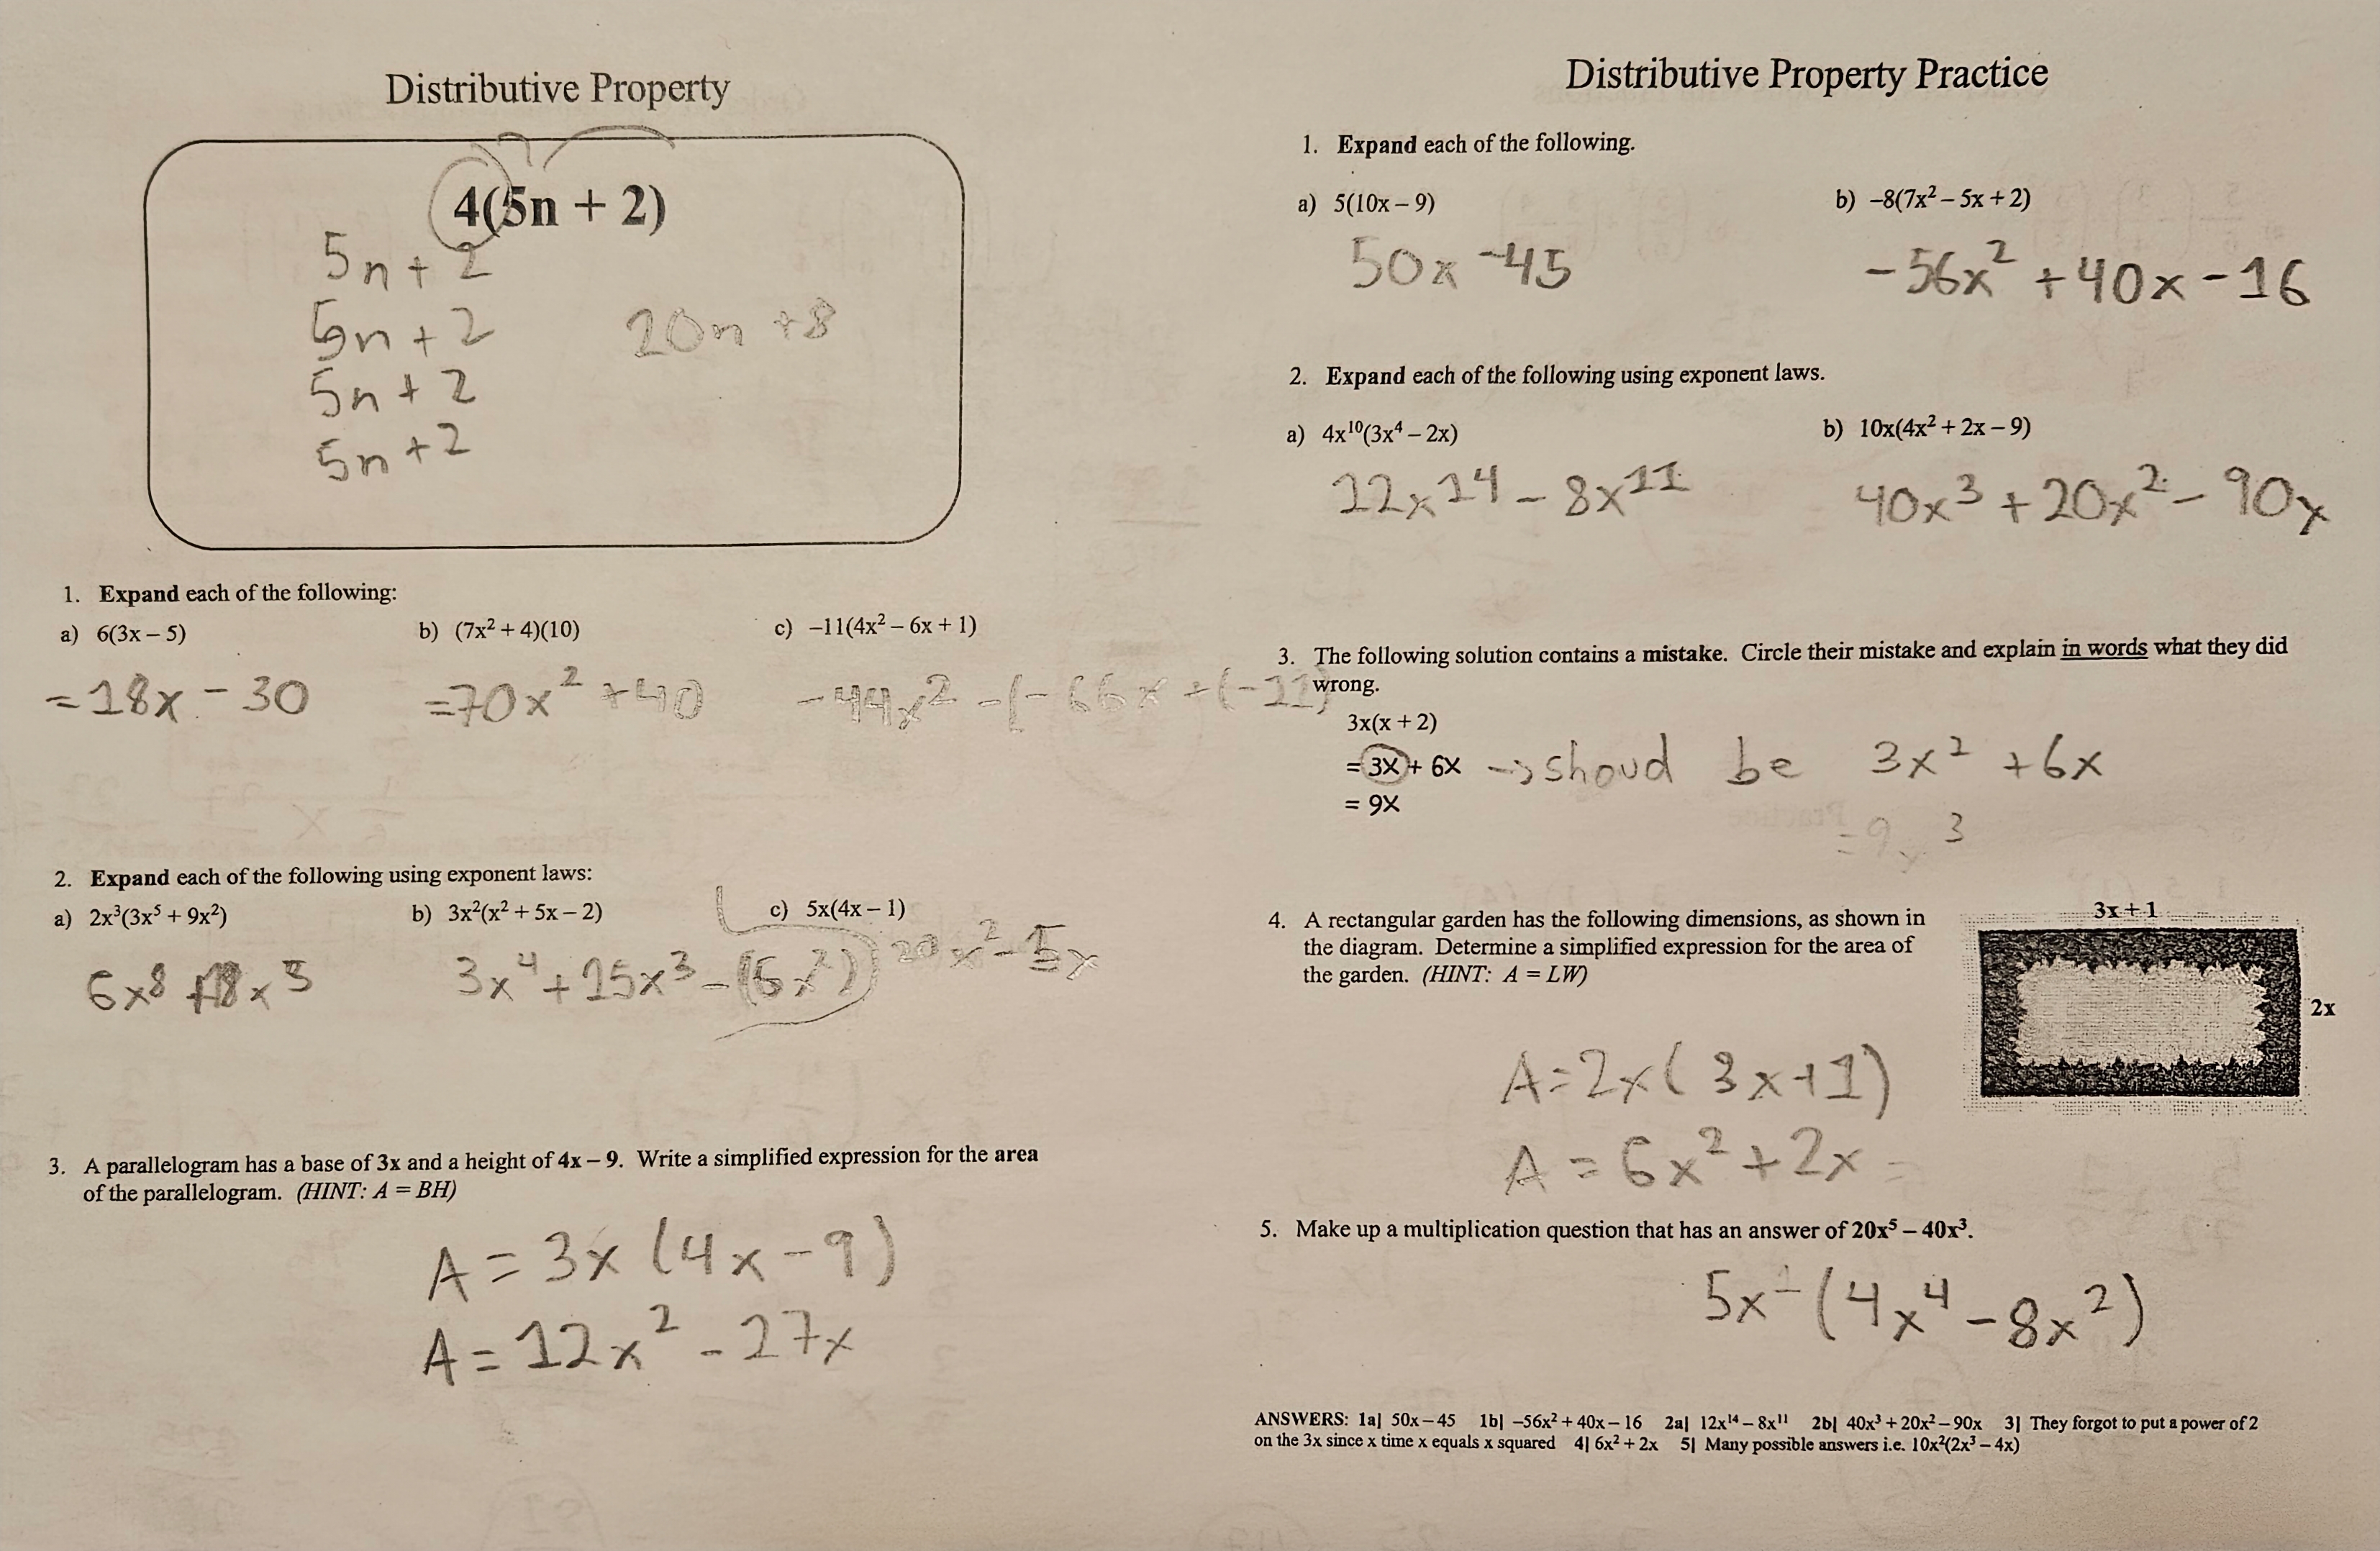 Distributive Property
4(5n + 2)
5n + 2
5n + 2
20n + 8
5n + 2
5n + 2
1. Expand each of the following:
a) 6(3x – 5)
b) (7x² + 4)(10)
c) –11(4x² – 6x + 1)
= 18x - 30
= 70x² + 40
-44x² -(-66x +(-11)
2. Expand each of the following using exponent laws:
a) 2x³(3x⁵ + 9x²)
b) 3x²(x² + 5x – 2)
c) 5x(4x – 1)
6x⁸ +18x⁵
3x⁴ + 15x³ - (6x²)
20x² - 5x
3. A parallelogram has a base of 3x and a height of 4x – 9. Write a simplified expression for the area
of the parallelogram. (HINT: A = BH)
A = 3x (4x - 9)
A = 12x² - 27x
Distributive Property Practice
1. Expand each of the following.
a) 5(10x – 9)
b) –8(7x² – 5x + 2)
50x -45
-56x² +40x -16
2. Expand each of the following using exponent laws.
a) 4x¹⁰(3x⁴ – 2x)
b) 10x(4x² + 2x – 9)
12x¹⁴ - 8x¹¹
40x³ + 20x² - 90x
3. The following solution contains a mistake. Circle their mistake and explain in words what they did
wrong.
3x(x + 2)
= 3x + 6x → shoud be 3x² +6x
= 9x
= 9x³
4. A rectangular garden has the following dimensions, as shown in
the diagram. Determine a simplified expression for the area of
the garden. (HINT: A = LW)
3x + 1
2x
A = 2x(3x+1)
A = 6x² + 2x =
5. Make up a multiplication question that has an answer of 20x⁵ – 40x³.
5x¹(4x⁴ - 8x²)
ANSWERS: 1a| 50x – 45 1b| –56x² + 40x – 16 2a| 12x¹⁴ – 8x¹¹ 2b| 40x³ + 20x² – 90x 3| They forgot to put a power of 2
on the 3x since x time x equals x squared 4| 6x² + 2x 5| Many possible answers i.e. 10x²(2x³ – 4x)